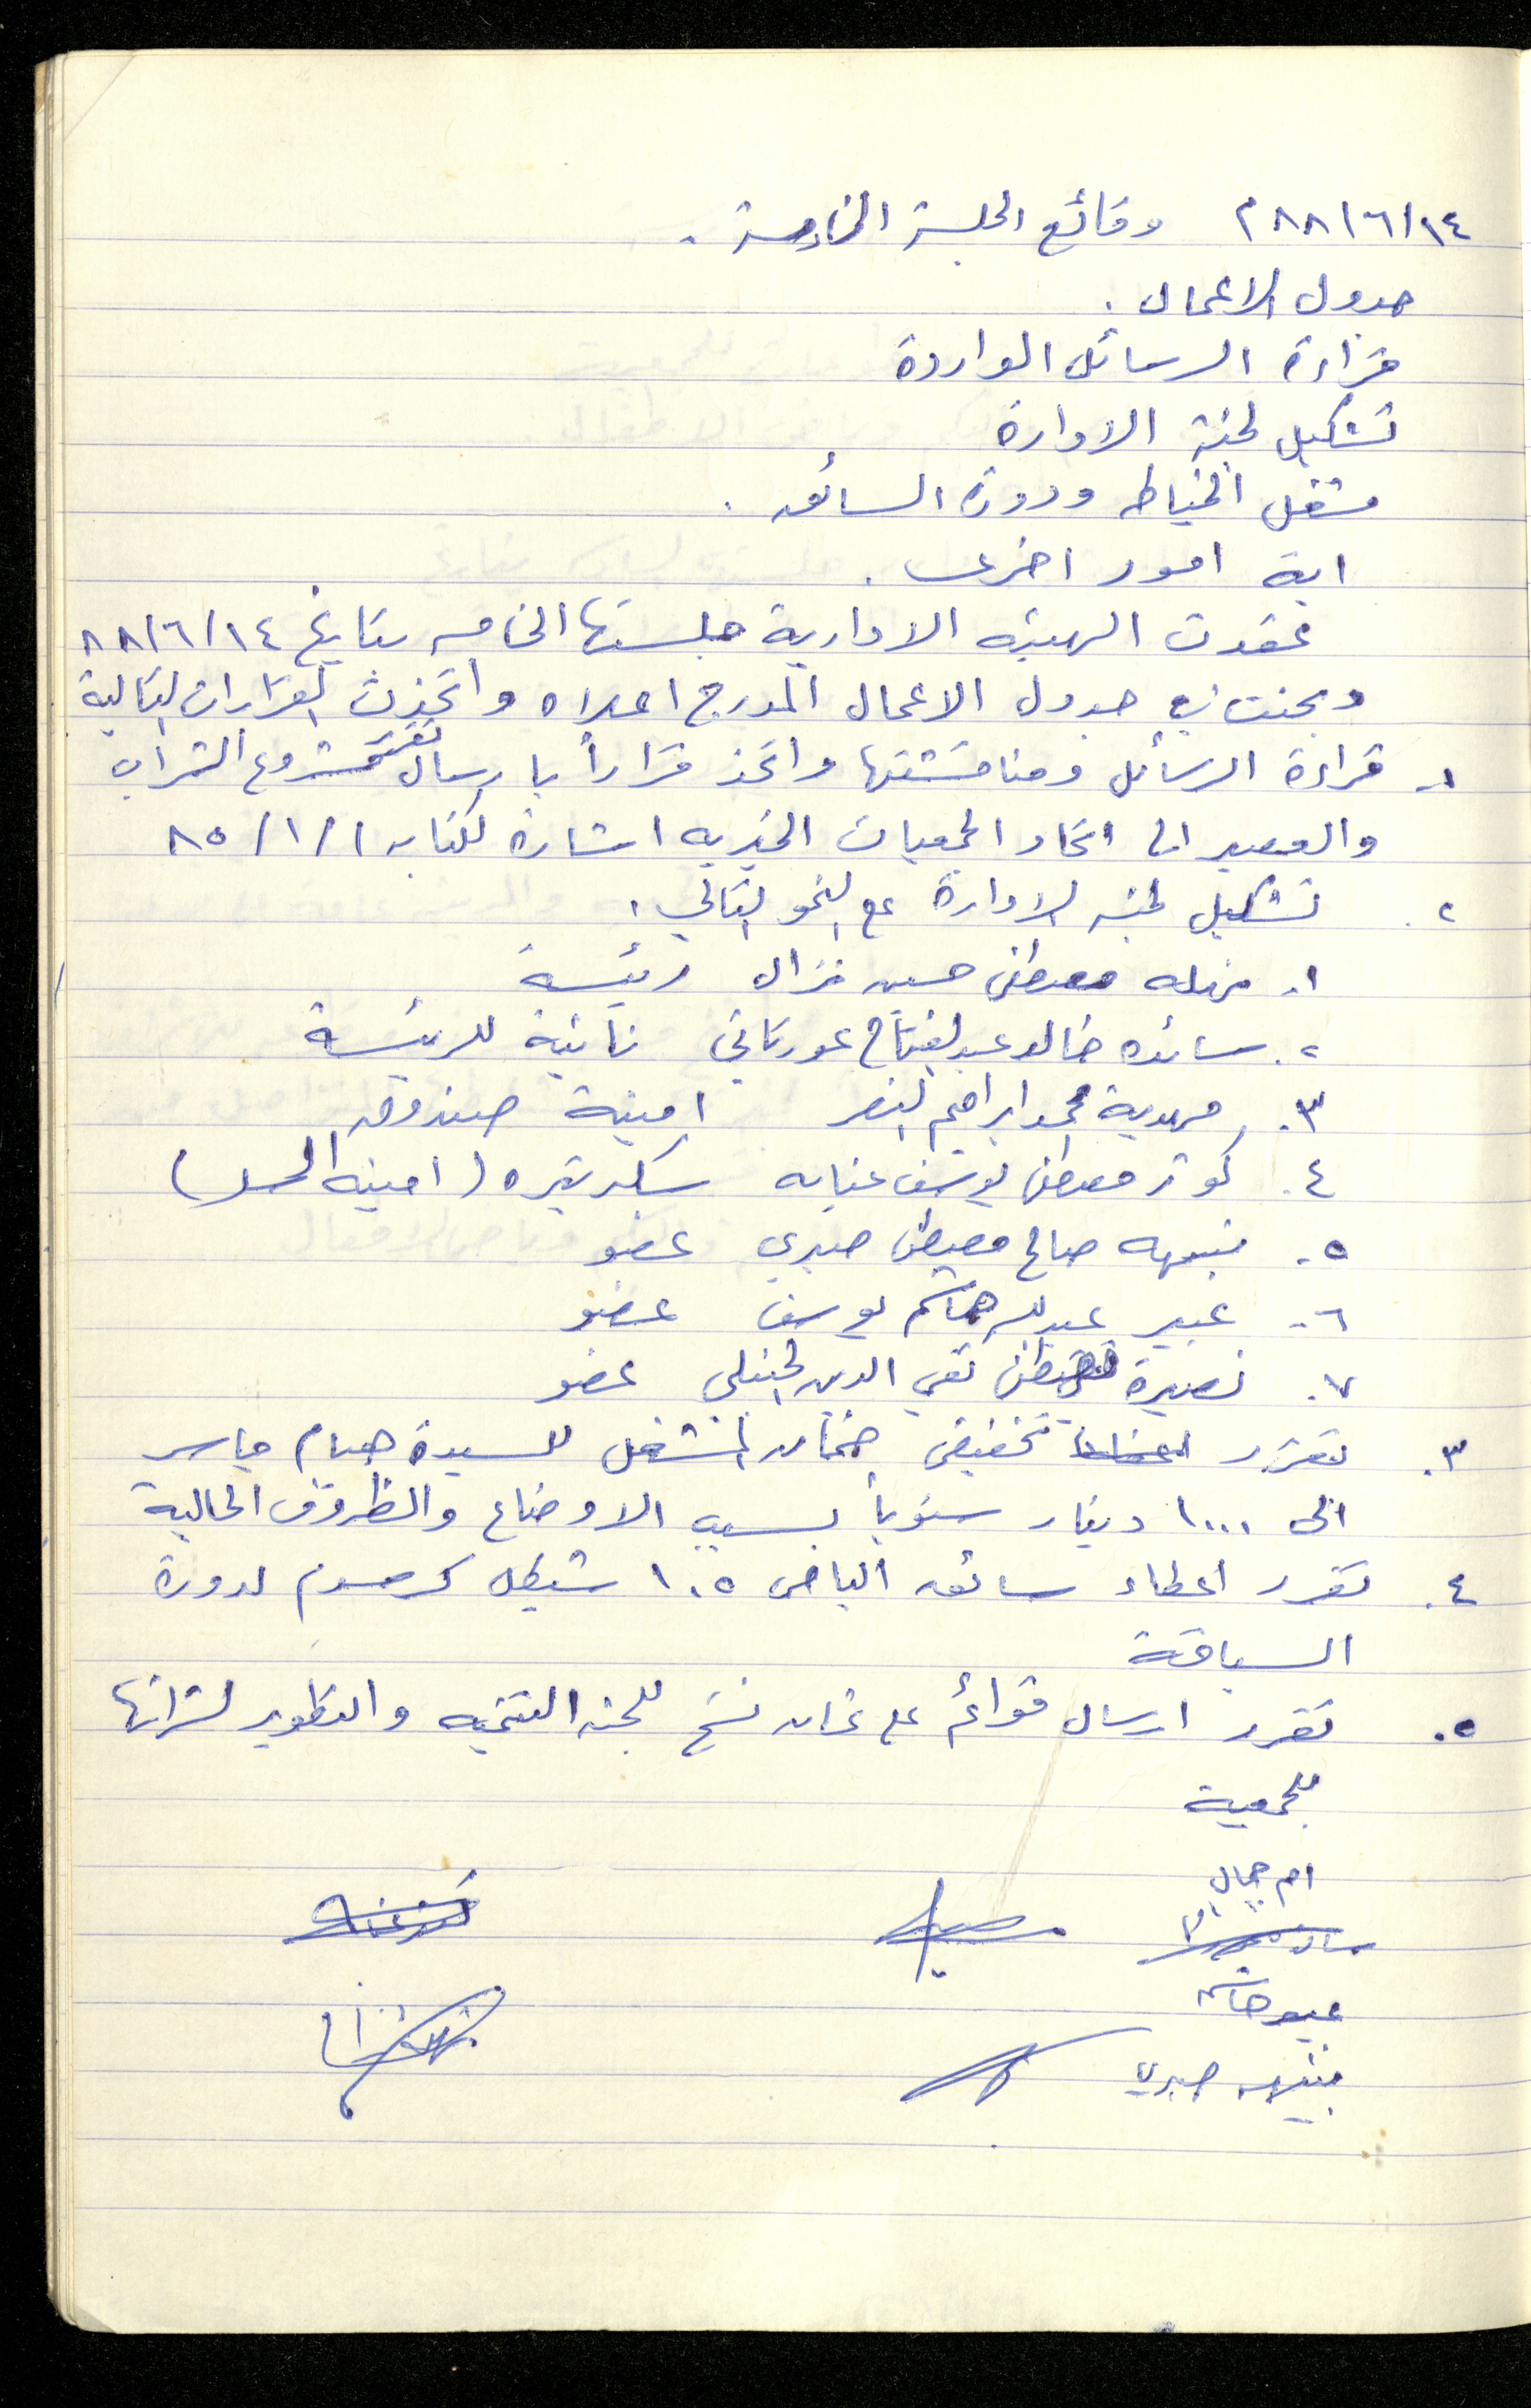 ٨٨/٦/١٤ م وقائع الجلسة الخامسة .
جدول الاعمال .
قراءة الرسائل الواردة
تشكيل لجنة الادارة
مشغل الخياطه ودورة السائق .
اية امور اخرى .
عقدت الهيئه الادارية جلستها الخامسه بتاريخ ٨٨/٦/١٤
وبحثت في جدول الاعمال المدرج اعلاه واتخذت القرارات التالية
١- قراءة الرسائل ومناقشتها واتخذ قراراً بارسال مشروع الشراب
والعصير الى اتحاد الجمعيات الخيريه اشارة لكتابه ٨٥/١/١
٢. تشكيل لجنه الادارة على النحو التالي .
١. مصطفى حسين غزال رئيسة
٢. سائده خالد عبد الفتاح عورتاني نائبة للرئيسة
٣. مهدية محمد ابراهيم النصر امينة صندوق
٤. كوثر مصطفى يوسف عنابه سكرتيره (امينه السر)
٥. نبيهه صالح مصطفى صبري عضو
٦- عبير عبد الله هاشم يوسف عضو
٧. نصيرة تقي الدين الحنبلي عضو
٣. تقرر تخفيض ضمان المشغل للسيدة هيام جاسر
الى ١٠٠٠ دينار سنوياً بسبب الاوضاع والظروف الحالية
٤. تقرر اعطاء سائق الباص ١٠٥ شيكل كرسوم لدورة
السياقة
٥. تقرر ارسال قوائم على ثمان نسخ للجنه التنميه والتطوير لشرائها
للجمعية
ام جمال
عبير هاشم
نبيهه صبري